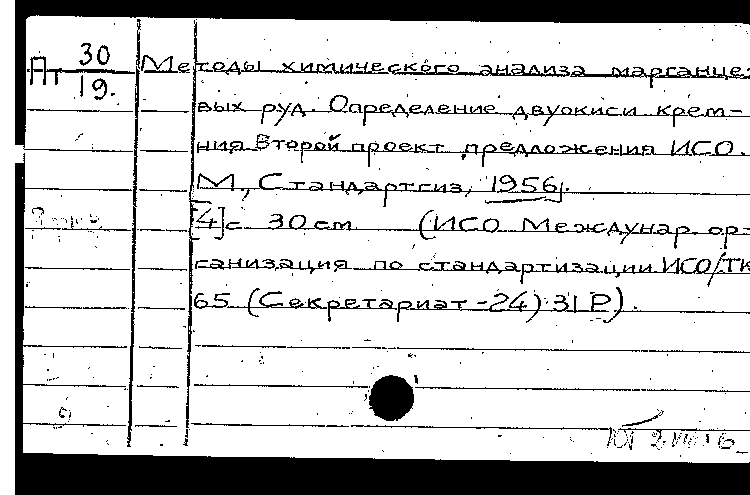 Пт 30
19.
Методы химического анализа марганце-
вых руд. Определение двуокиси крем-
ния Второй проект предложения ИСО.
М., Стандартгиз, 1956.
[4]с 30 см (ИСО Междунар. ор-
ганизация по стандартизации ИСО/ТК
65 (Секретариат-24) 31 Р).